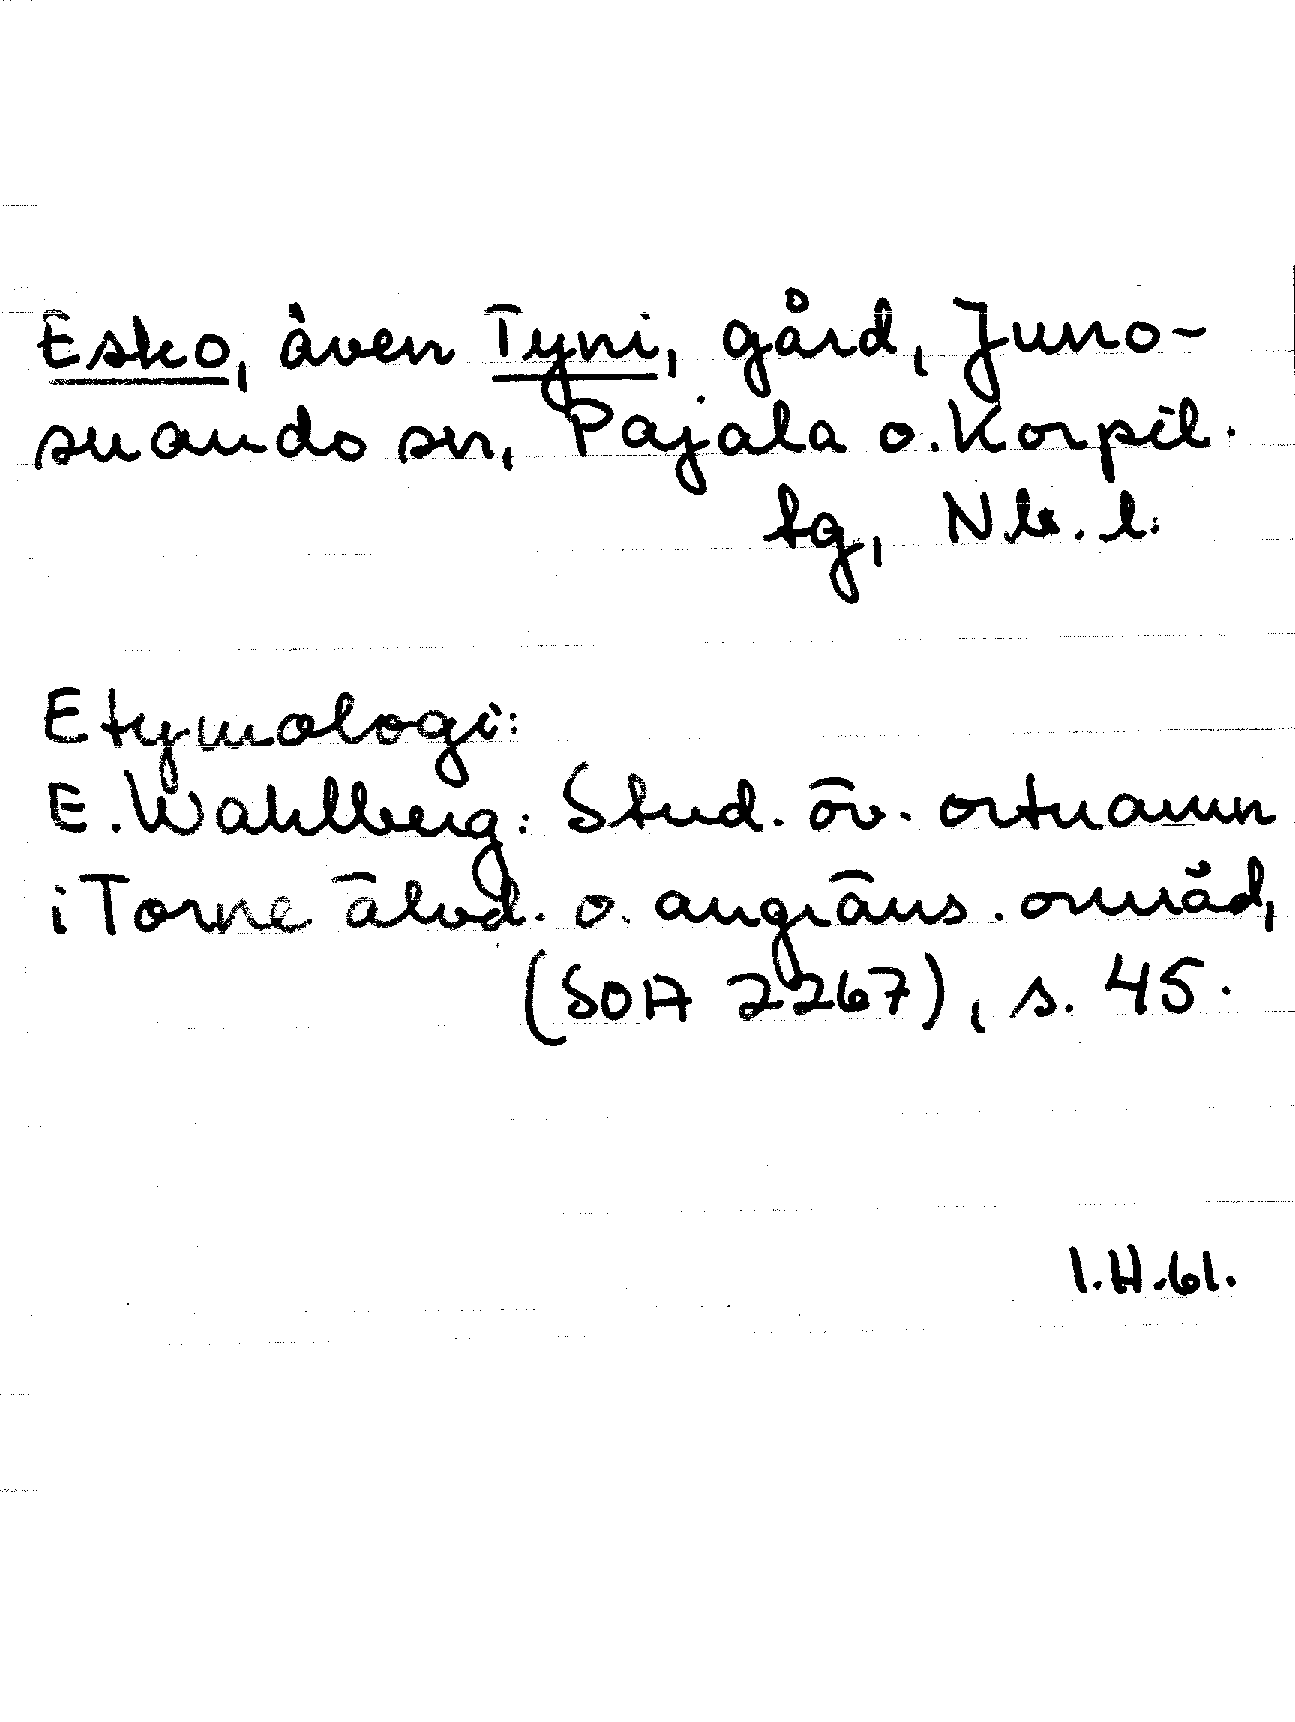 Esko, även Tyni, gård, Juno-
suando sn, Pajala o. Korpil.
tg, Nb. l.
Etymologi:
E. Wahlberg: Stud. öv. ortnamn
i Torne älvd. o. angräns. områd,
(SOA 2267), s. 45.
I.H.61.